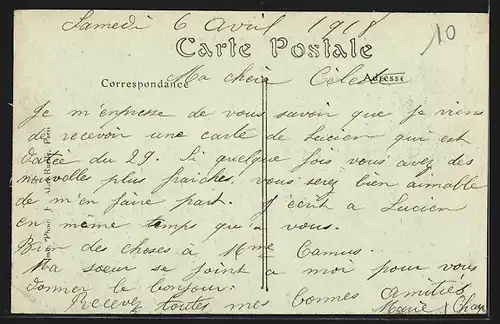 Samedi 6 Avril 1918
10
Carte Postale
Correspondance
Adresse
Ma chère Céleste
Je m'enpresse de vous savoir que je viens
de recevoir une carte de Lucien qui est
datée du 29. Si quelque fois vous avez des
nouvelles plus fraiches, vous serez bien aimable
de m'en faire part. J'écrit a Lucien
en même temps qu'a vous.
Bien des choses à Mme Camus.
Ma soeur se joint a moi pour vous
donner le bonjour.
Recevez toutes mes bonnes amitiés
Marie